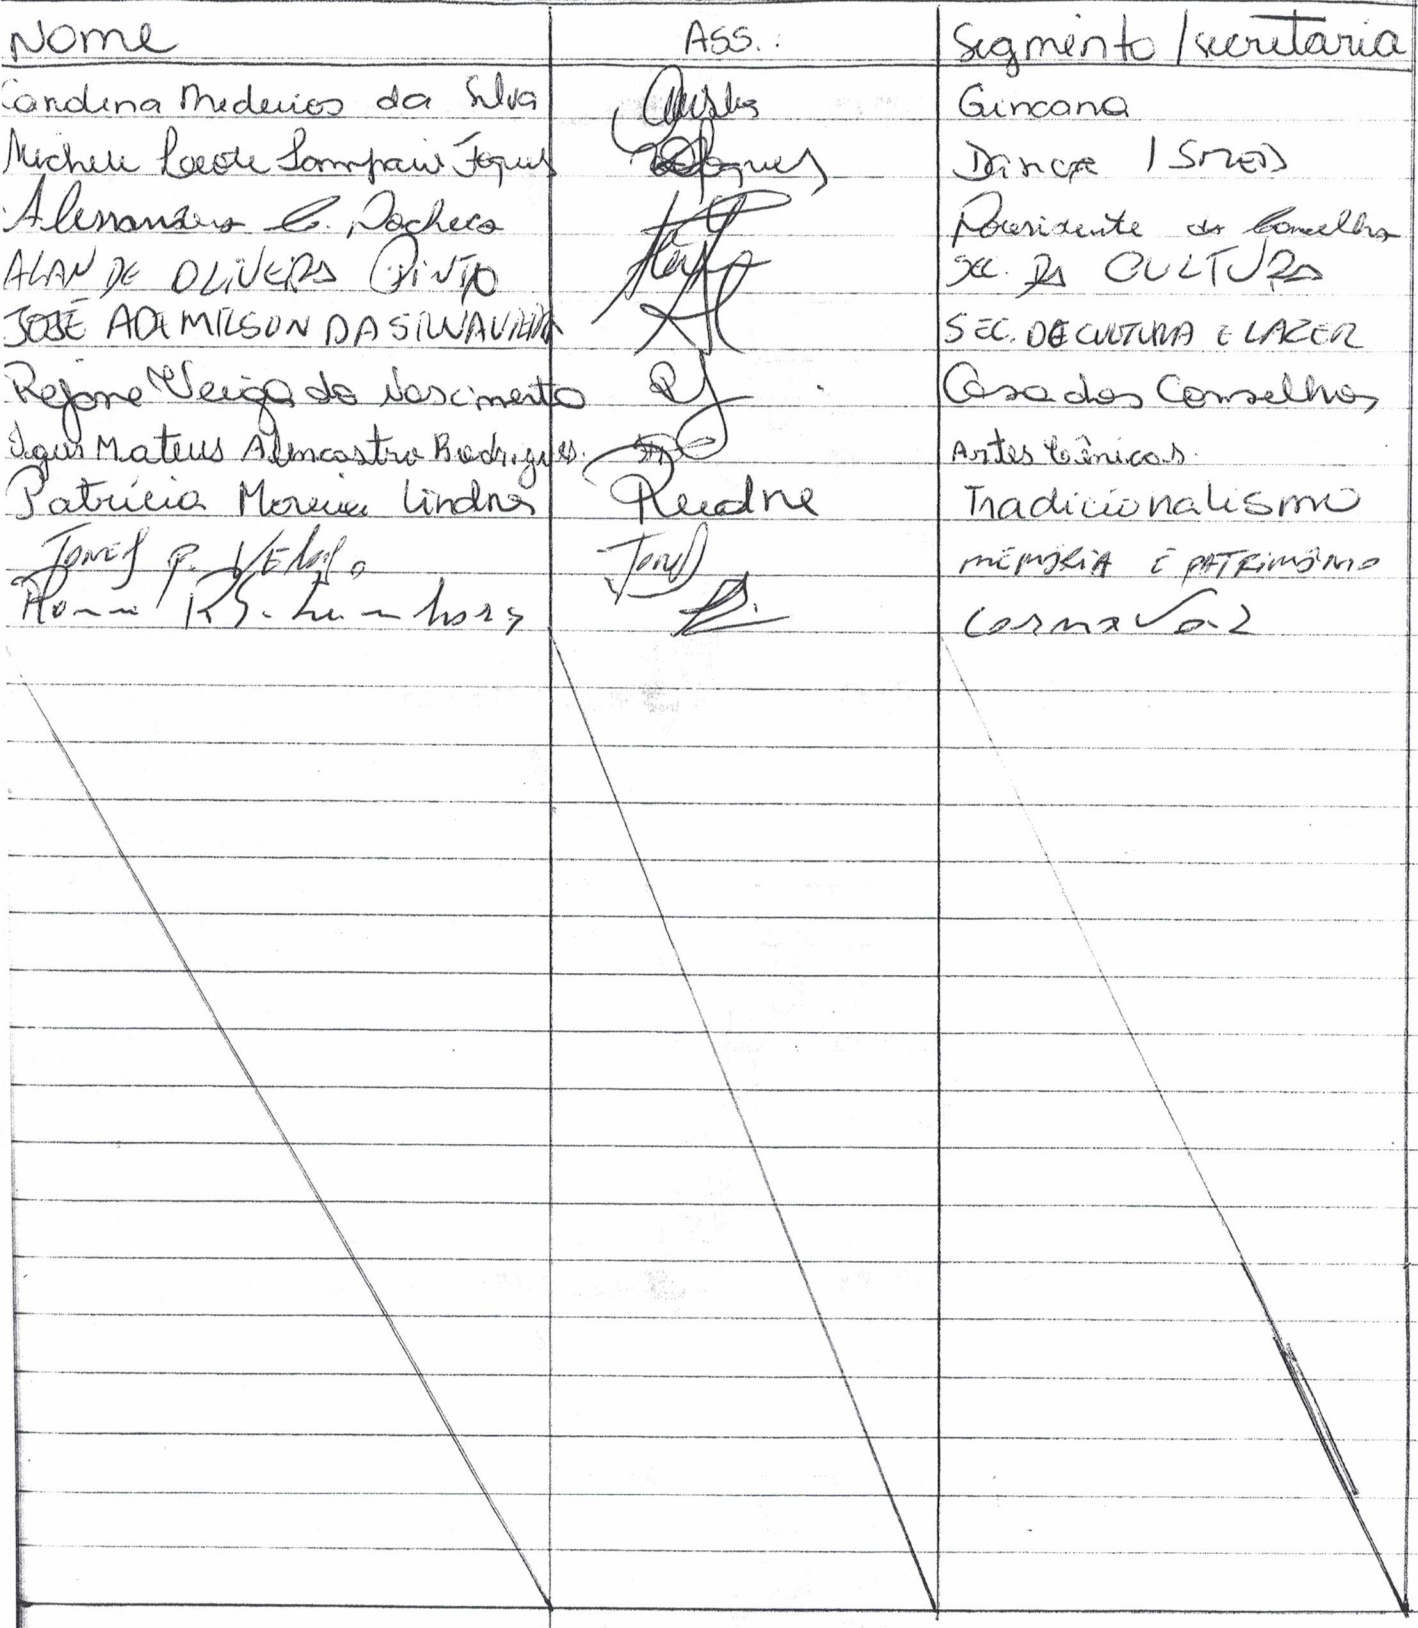 Nome Ass.: Segmento / secretaria
Carolina Medeiros da Silva Gincana
Michele Sampaio Jaques Jaques Dança / SMED
C. Pacheco Presidente do Conselho
ALAN DE OLIVEIRA PINTO SEC. DA CULTURA
JOSÉ ADEMILSON DA SILVA VIEIRA SEC. DE CULTURA E LAZER
Rejane Veiga do Nascimento Casa dos Conselhos
Igor Mateus Alencastro Rodrigues. Artes Cênicas.
Patrícia Moreira Lindner Tradicionalismo
JONES P. MEMÓRIA E PATRIMÔNIO
Carnaval